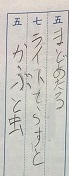 五 まどあける
七 ライトてらすと
五 かぶと虫